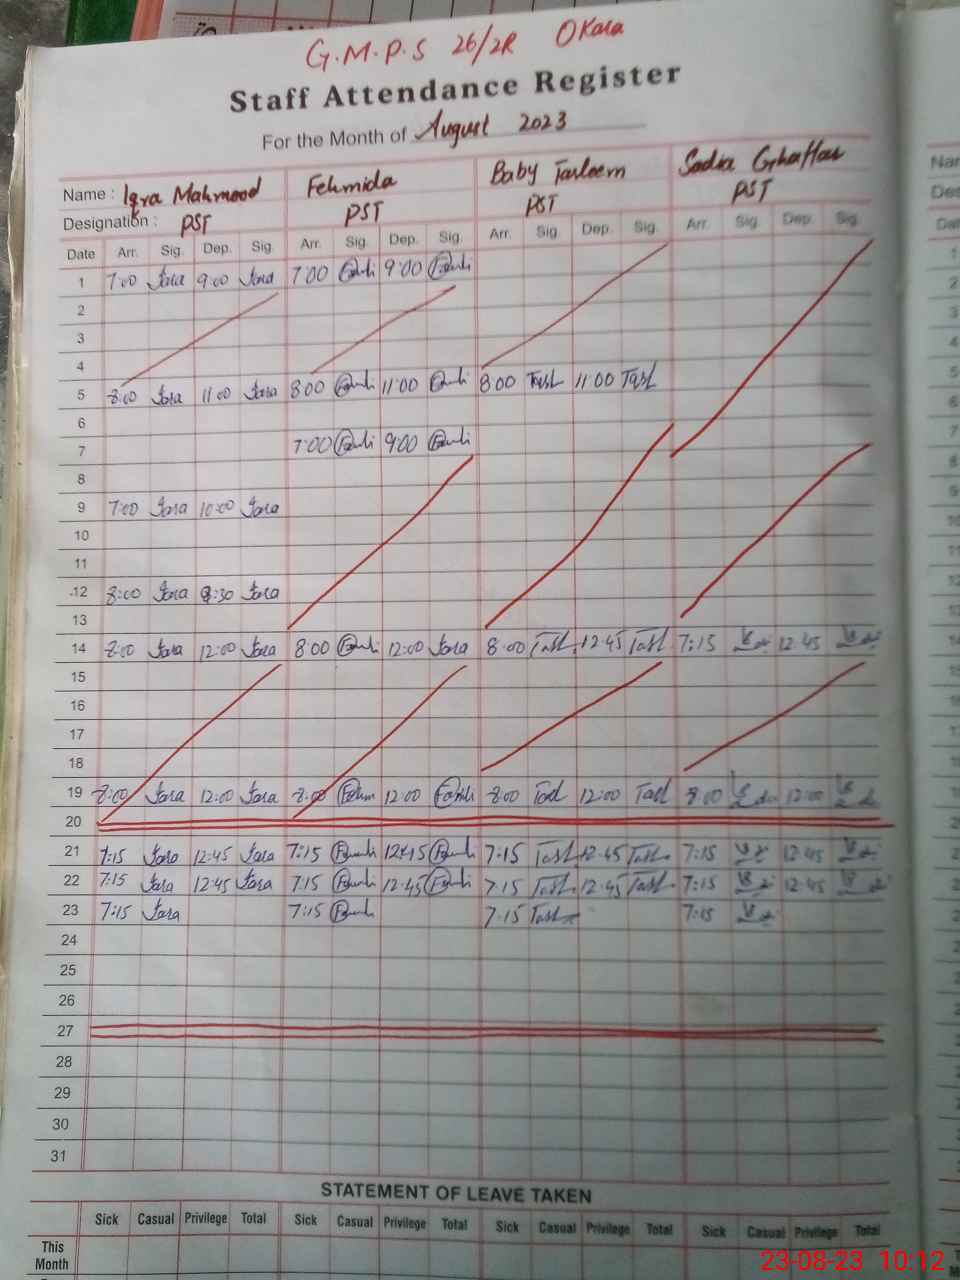 G.M.P.S 26/2R Okara
Staff Attendance Register
For the Month of August 2023
Name : Iqra Mahmood Fehmida Baby Tasleem Sadia Ghaffar
Designation : PST PST PST PST
Date Arr. Sig. Dep. Sig. Arr. Sig. Dep. Sig. Arr. Sig. Dep. Sig. Arr. Sig. Dep. Sig.
1 7:00 9:00 7:00 9:00
2
3
4
5 8:00 11:00 8:00 11:00 8:00 Tasl 11:00 Tasl
6
7 7:00 9:00
8
9 7:00 10:00
10
11
12 8:00 8:30
13
14 8:00 12:00 8:00 12:00 8:00 Tasl 12:45 Tasl 7:15 12:45
15
16
17
18
19 8:00 12:00 8:00 12:00 8:00 Tasl 12:00 Tasl 8:00 12:00
20
21 7:15 12:45 7:15 12:45 7:15 Tasl 12:45 Tasl 7:15 12:45
22 7:15 12:45 7:15 12:45 7:15 Tasl 12:45 Tasl 7:15 12:45
23 7:15 7:15 7:15 Tasl 7:15
24
25
26
27
28
29
30
31
STATEMENT OF LEAVE TAKEN
Sick Casual Privilege Total Sick Casual Privilege Total Sick Casual Privilege Total Sick Casual Privilege Total
This
Month
23-08-23 10:12